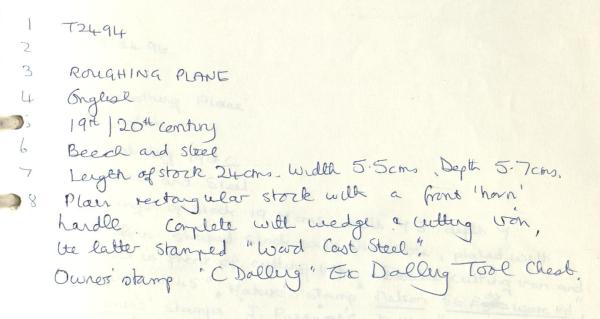 1 T2494
2
3 ROUGHING PLANE
4 English
5 19th/20th century
6 Beech and steel
7 Length of stock 24cms. Width 5.5cms. Depth 5.7cms.
8 Plain rectangular stock with a front 'horn'
handle. Complete with wedge & cutting iron,
the latter stamped "Ward Cast Steel".
Owner's stamp "C Dalling" Ex Dalling Tool Chest.